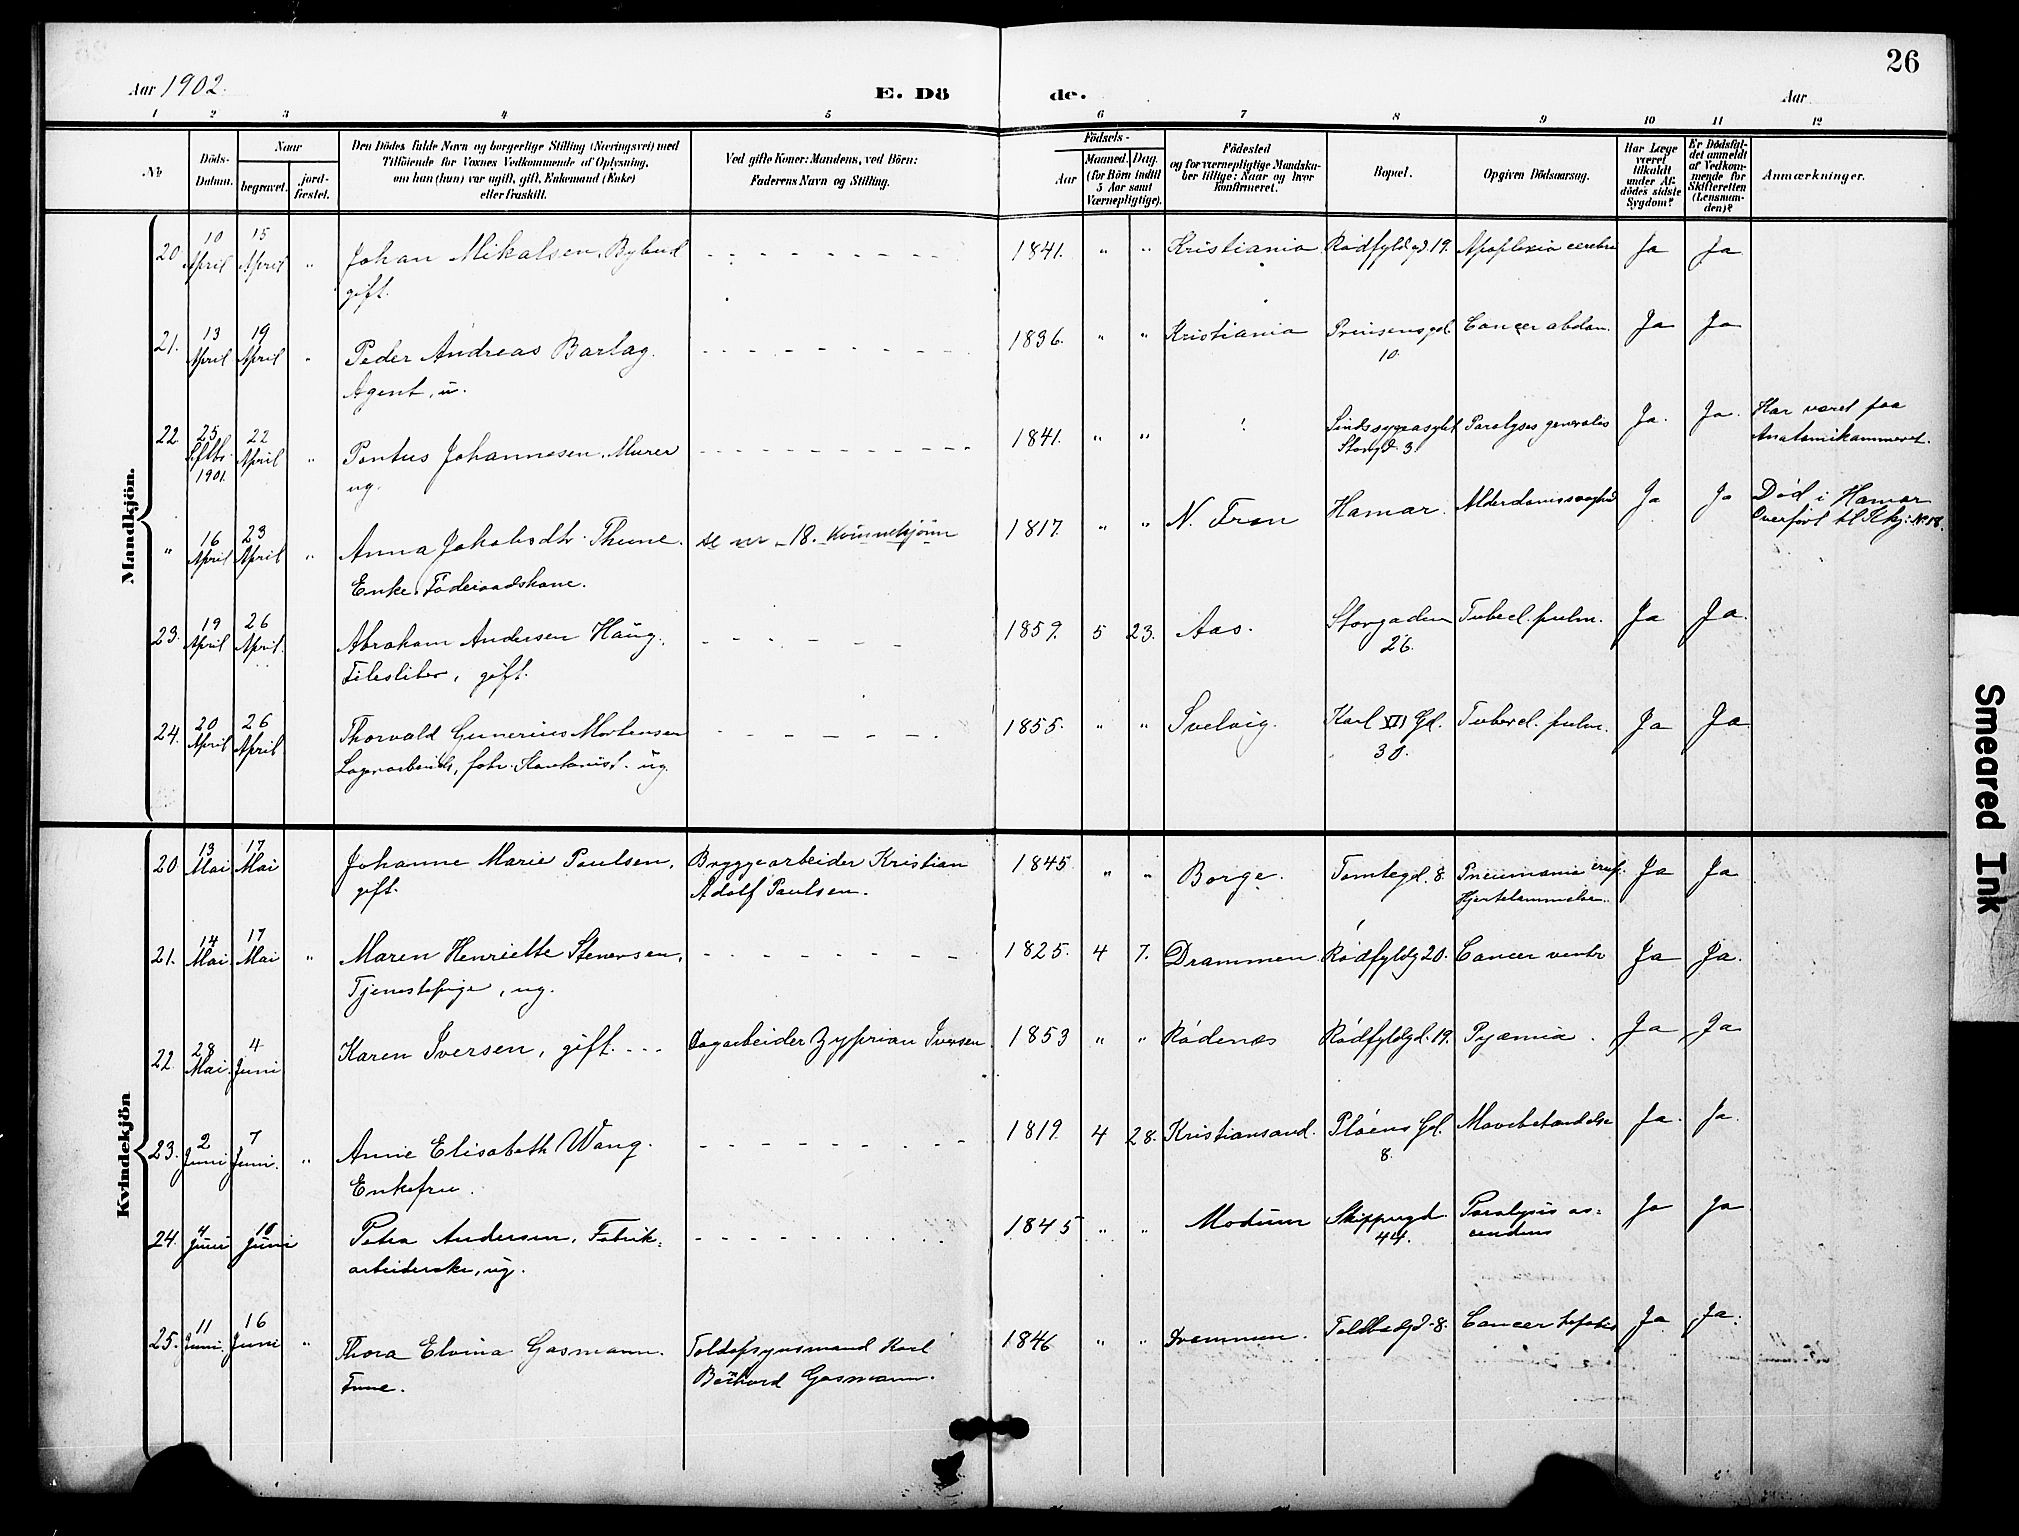 26
Aar 1902.
E. Dö de.
Aar
1 2 3 4 5 6 7 8 9 10 11 12
No
Döds-Datum.
Naar
begravet.
jord-fæstet.
Den Dödes fulde Navn og borgerlige Stilling (Næringsvei) med
Tilföiende for Voxnes Vedkommende af Oplysning,
om han (hun) var ugift, gift, Enkemand (Enke)
eller fraskilt.
Ved gifte Koner: Mandens, ved Börn:
Faderens Navn og Stilling.
Födsels-
Aar
Maaned. Dag.
(for Börn indtil
5 Aar samt
Værnepligtige).
Födested
og for værnepligtige Mandska-
ber tillige: Naar og hvor
konfirmeret.
Bopæl.
Opgiven Dödsaarsag.
Har Læge
været
tilkaldt
under Af-
dödes sidste
Sygdom?
Er Dödsfal-
det anmeldt
af Vedkom-
mende for
Skifteretten
(Lensman-
den)?
Anmærkninger.
Mandkjön.
20 10 April 15 April " Johan Mikalsen, Bybud 1841. " " Kristiania Rødfyldgd 19. Apoplexia cerebri Ja Ja
gift.
21. 13 April 19 April " Peder Andreas Barlag. 1836. " " Kristiania Prinsensgd. 10. Cancer abdom. Ja Ja
Agent, u.
22 25 Septbr. 1901. 22 April " Pontus Johannesen, Murer 1841. " " ? Sindssygeasylet Storgd. 3. Paralyses generalis Ja. Ja. Har været paa
Anatomikammeret.
ug.
" 16 April 23 April " Anna Jakobsdtr Thune. se nr 18. Kvindekjønn 1817. " " N. Fron Hamar. Alderdomssvaghed Ja Ja Død i Hamar
Overført til Kkj: No 18.
Enke, Føderaadskone.
23. 19 April 26 April. Abraham Andersen Haug. 1859. 5 23. Aas. Storgaden 26. Tubercl. pulm. Ja Ja.
Filesliber, gift.
24. 20 April 26 April Thorvald Gunerius Mortensen 1855. " " Svelvig. Karl XII Gd. 30. Tubercl. pulm. Ja Ja
Lagerarbeider, forh. Kontorist. ug.
Kvindekjön
20 13 Mai 17 Mai Johanne Marie Paulsen, Bryggearbeider Kristian 1845 " " Borge. Tomtegd. 8. Pneumonia crup. Ja Ja
gift. Adolf Paulsen. Hjertelammelse.
21. 14 Mai 17 Mai " Maren Henriette Stenersen, 1825. 4 7. Drammen Rødfyldg 20. Cancer ventr Ja Ja.
Tjenestepige, ug.
22. 28 Mai. 4 Juni Karen Iversen, gift. Dagarbeider Zyprian Iversen 1853 " " Rødenæs Rødfyldgd. 19. Pyæmia. Ja Ja
23. 2 Juni 7 Juni. " Anne Elisabeth Wang. 1819. 4 28. Kristiansand. Pløens Gd. 8. Mavebetændelse Ja. Ja.
Enkefru.
24. 4 Juni 10 Juni Petra Andersen, Fabrik- 1845 " " Modum Skippergd 44. Paralysis as-
cendens Ja Ja
arbeiderske, ug.
25. 11 Juni. 16 Juni " Thora Elvina Gasmann. Toldopsynsmand Karl 1846 " " Drammen. Toldbodgd. 8. Cancer hepatis Ja Ja.
Frue. Gasmann.
Smeared Ink